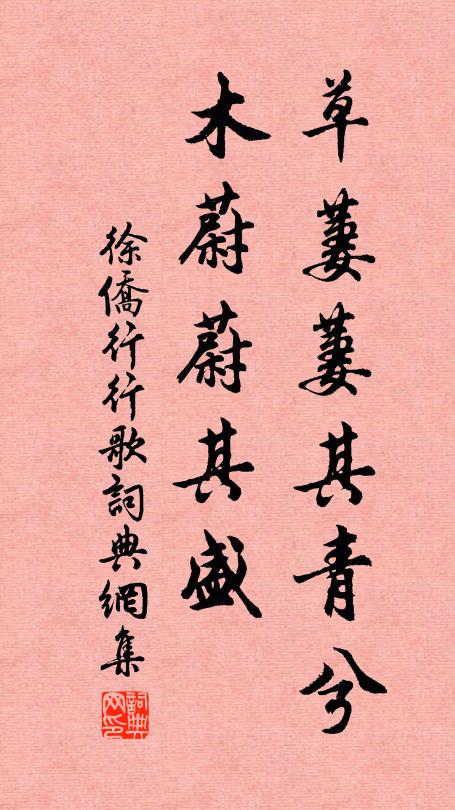 草萋萋其青兮
木蔚蔚其盛
徐僑行行歌詞典網集
詞典
网印